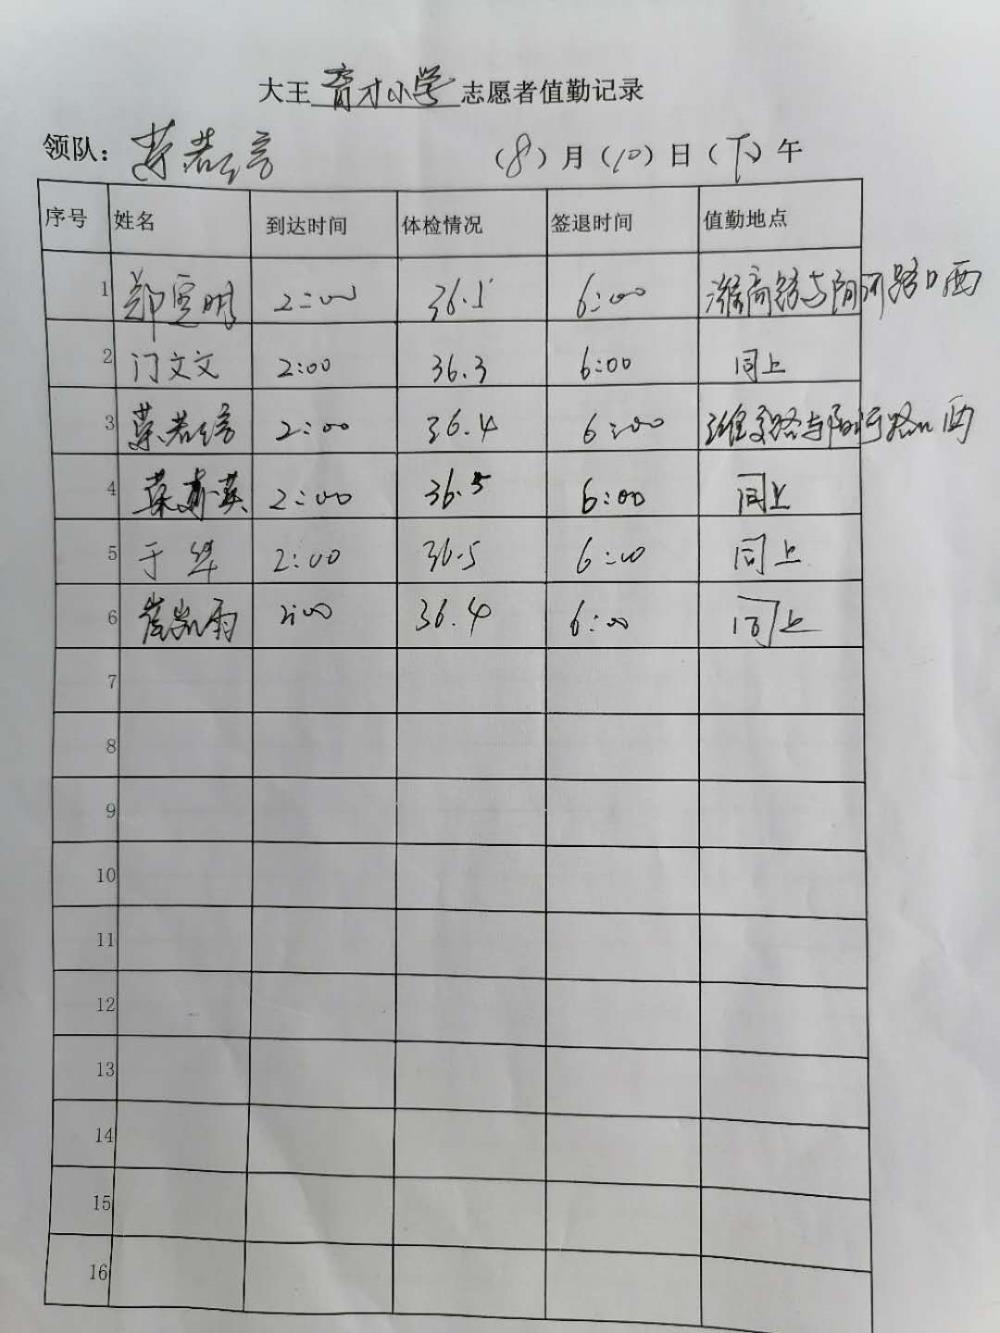 大王育才小学志愿者值勤记录
领队： （8）月（10）日（下）午
序号 姓名 到达时间 体检情况 签退时间 值勤地点
1 2:00 36.5 6:00 路与阳河路口西
2 门文文 2:00 36.3 6:00 同上
3 2:00 36.4 6:00 路与阳河路口西
4 2:00 36.5 6:00 同上
5 于华 2:00 36.5 6:00 同上
6 崔凯雨 2:00 36.4 6:00 同上
7
8
9
10
11
12
13
14
15
16